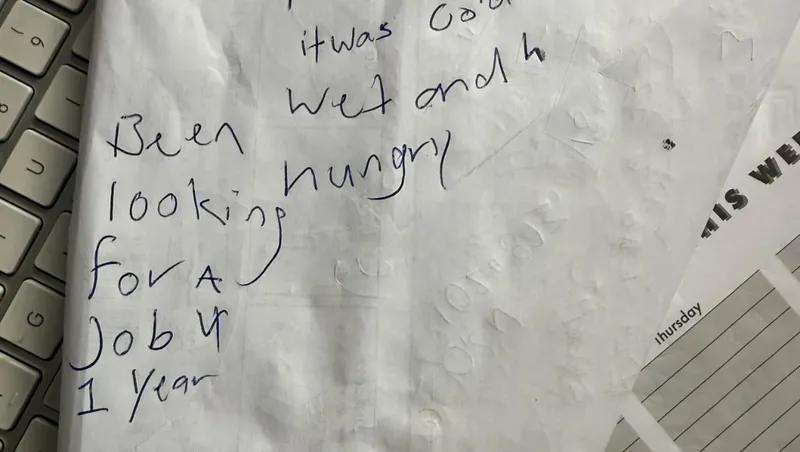 it was Cold
Wet and h
hungry
Been
looking
for A
Job 4
1 Year
THIS WEE
Thursday
U
G
9